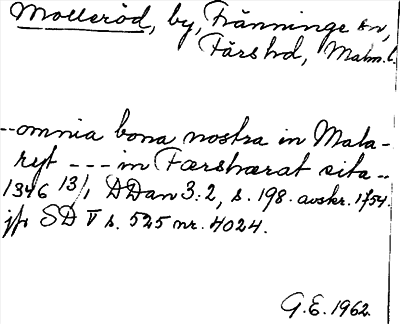 Molleröd, by, Fränninge sn,
Färs hd, Malm. l.
-- omnia bona nostra in Mala-
ryt --- in Færshærat sita --
1346 13/1 DDan 3:2, s. 198. avskr. 1754.
jfr SD V s. 525 nr. 4024.
G.E. 1962.